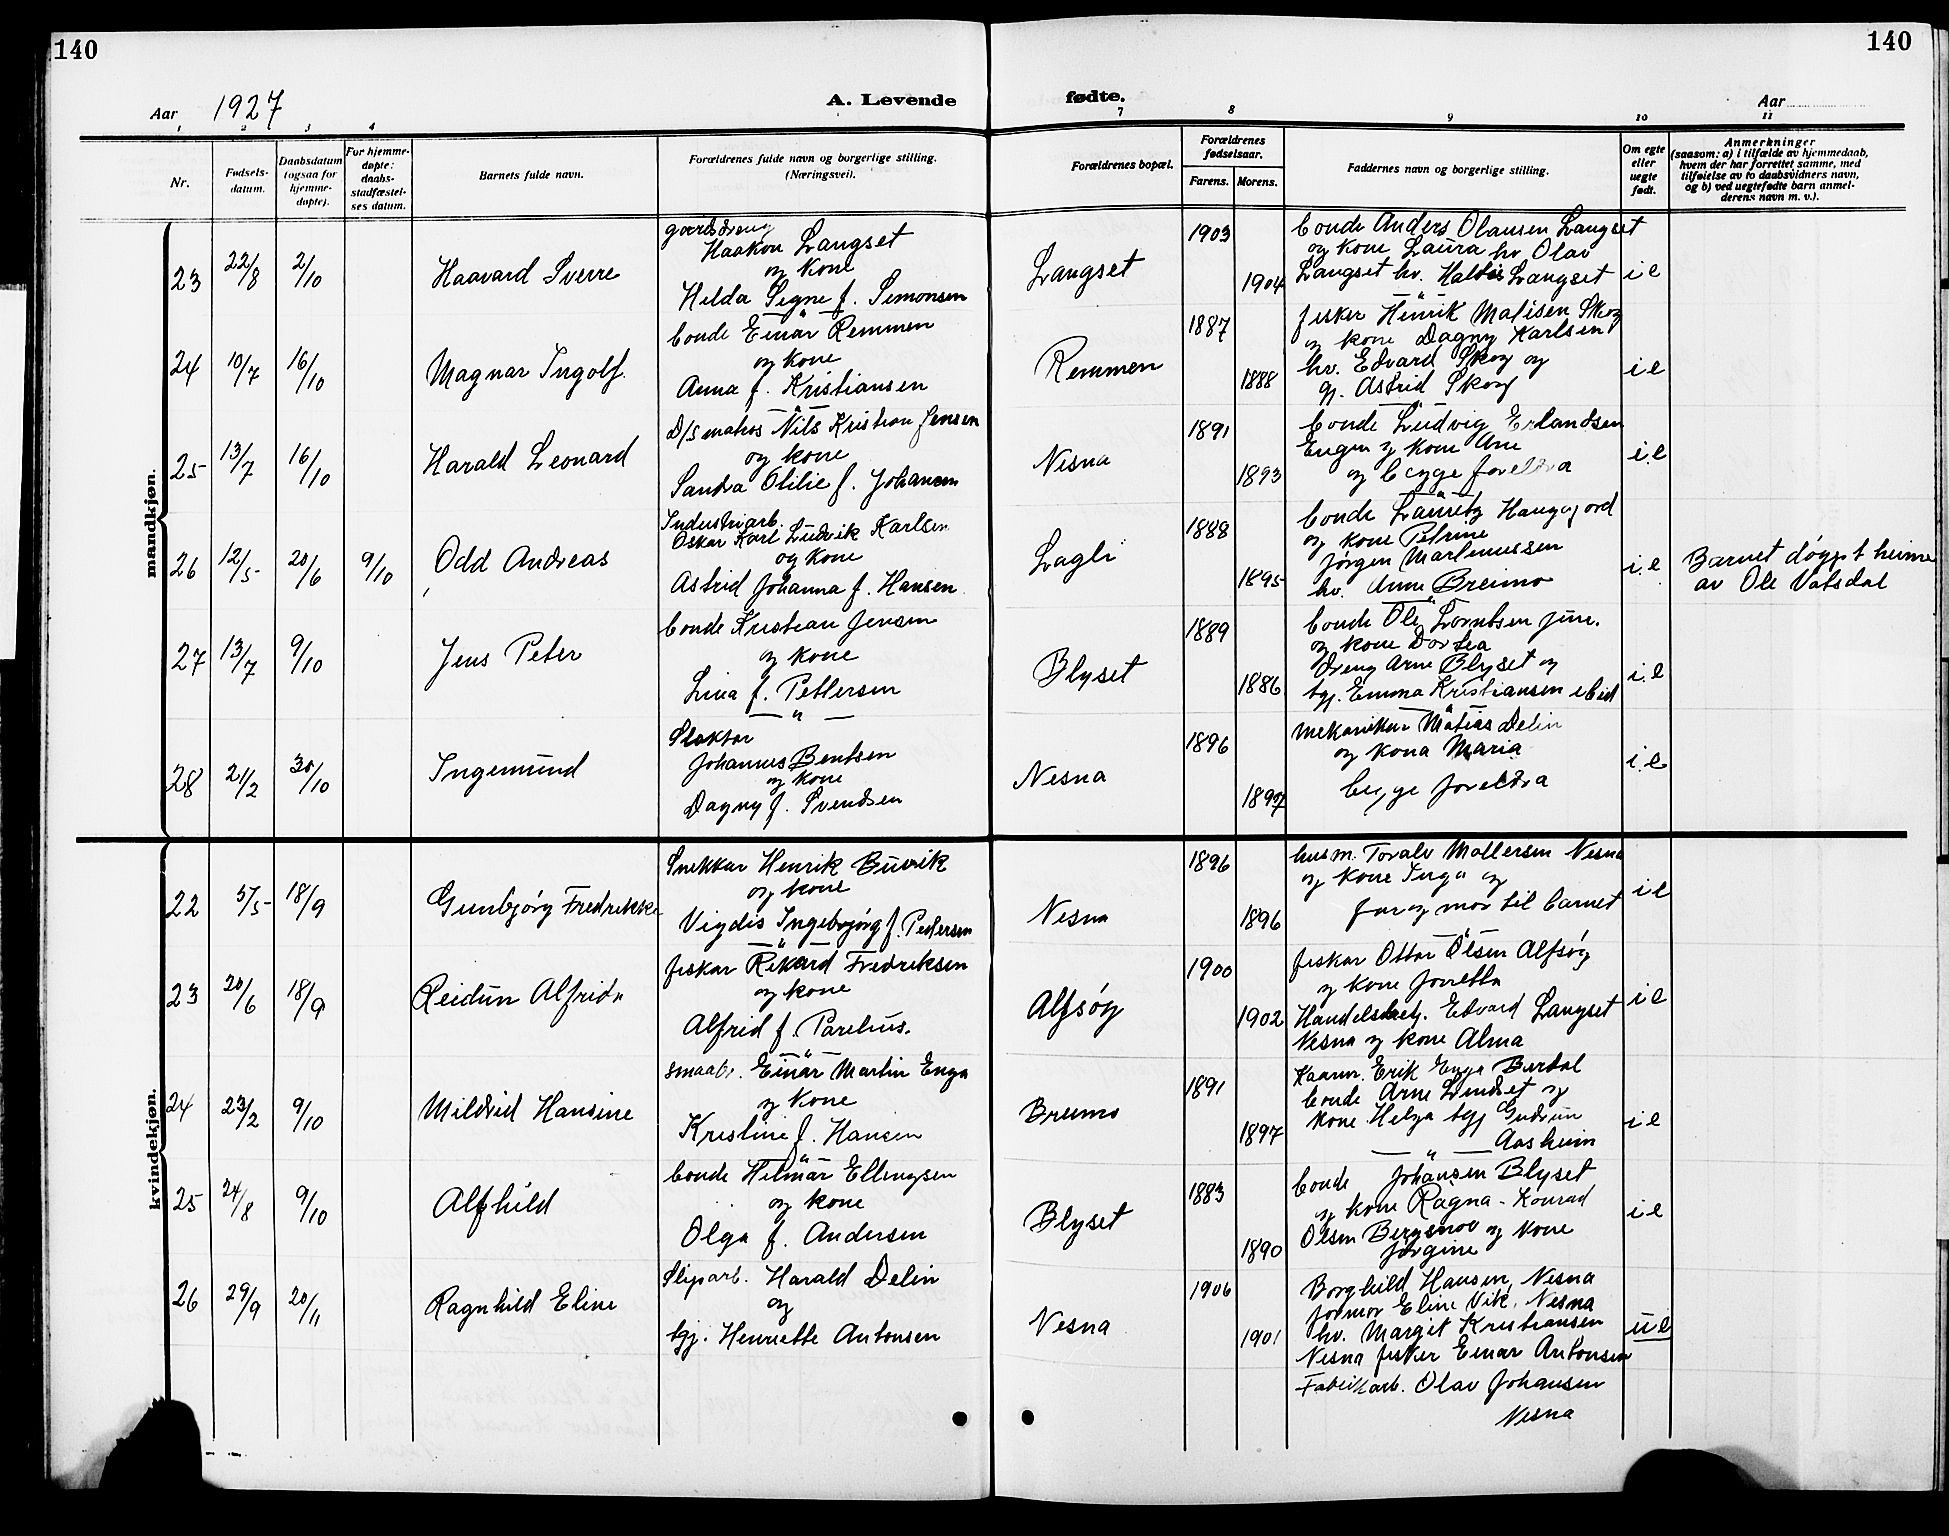 140
140
Aar 1927
A. Levende
fødte.
Aar
1 2 3 4
7 8 9 10 11
Nr.
Fødsels-
datum.
Daabsdatum
(ogsaa for
hjemme-
døpte).
For hjemme-
døpte:
daabs-
stadfæstel-
ses datum.
Barnets fulde navn.
Forældrenes fulde navn og borgerlige stilling.
(Næringsvei).
Forældrenes bopæl.
Forældrenes
fødselsaar.
Farens. Morens.
Faddernes navn og borgerlige stilling.
Om egte
eller
uegte
født.
Anmerkninger
(saasom: a) i tilfælde av hjemmedaab,
hvem der har forrettet samme, med
tilføielse av to daabsvidners navn,
og b) ved uegtefødte barn anmel-
derens navn m. v.).
mandkjøn.
23 22/8 2/10 Haavard Sverre
Haakon Langset
og kone
Helda Signe f. Simonsen
Langset
1903
1904
bonde Anders Olausen Langset
og kone Laura hv. Olav
Langset hv. Haldis Langset
i.e
24 10/7 16/10 Magnar Ingolf.
bonde Einar Remmen
og kone
Anna f. Kristiansen
Remmen
1887
1888
fisker Henrik Matisen Skog
og kone Dagny Karlsen
hv. Edvard Skog og
gj. Astrid Skog
i.e
25 13/7 16/10 Harald Leonard
D/s matros Nils Kristian Jensen
og kone
Sandra Otilie f. Johansen
Nesna
1891
1893
bonde Ludvig Erlandsen
Engen og kone Ane
og begge foreldra
i.e
26 12/5 20/6 9/10 Odd Andreas
Industriarb.
Oskar Karl Ludvik Karlsen
og kone
Astrid Johanna f. Hansen
Lagli
1888
1895
bonde Lauritz Haugjord
og kone Petrine
Jørgen Martinussen
hv. Anne Breimo
i.e
Barnet døypt heime
av Ole Vatsdal
27 13/7 9/10 Jens Peter
bonde Kristian Jensen
og kone
Lina f. Pettersen
Blyset
1889
1886
bonde Ole Lorntsen jun.
og kone Dortea
dreng Arne Blyset og
tgj. Emma Kristiansen ibid
i.e
28 21/2 30/10 Ingemund
Slaktar
Johannes Bentsen
og kone
Dagny f. Svendsen
Nesna
1896
1897
mekanikar Matias Delin
og kona Maria
begge foreldra
i.e
kvindekjøn.
22 5/5 18/9 Gunbjørg Fredrikke
Snekkar Henrik Buvik
og kone
Vigdis Ingebjørg f. Pedersen
Nesna
1896
1896
husm. Toralv Mollersen Nesna
og kone Inga og
far og mor til barnet
i.e
23 20/6 18/9 Reidun Alfrida
fiskar Rikard Fredriksen
og kone
Alfrid f. Parelius.
Alfsøy
1900
1902
fiskar Ottar Olsen Alfsøy
og kone
Handelsbetj. Edvard Langset
Nesna og kone Alma
i.e
24 23/2 9/10 Mildrid Hansine
smaabr. Einar Martin Enga
og kone
Kristine f. Hansen
Breimo
1891
1897
Kaarm. Erik Enga Burdal
bonde Arne Lundset og
kone Helga tgj Gudrun
Aasheim
i.e
25 24/8 9/10 Alfhild
bonde Hilmar Ellingsen
og kone
Olga f. Andersen
Blyset
1883
1890
bonde Johansen Blyset
og kone Ragna - Konrad
Olsen Bergsmo og kone
Jørgine
i.e
26 29/9 20/11 Ragnhild Eline
Sliparb. Harald Delin
og
tgj. Henriette Antonsen
Nesna
1906
1901
Borghild Hansen, Nesna
formor Eline Vik, Nesna
hv. Margit Kristiansen
Nesna fisker Einar Antonsen
Fabrikkarb. Olav Johansen
Nesna
u e